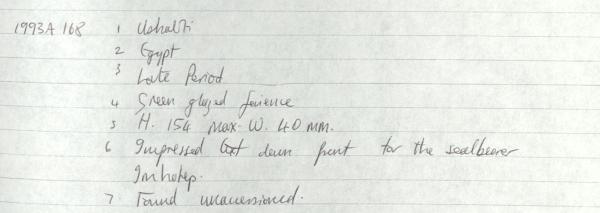 1993A 168 1 Ushabti
2 Egypt
3 Late Period
4 Green glazed faience
5 H. 154 max. W. 40 mm.
6 Impressed text down front for the sealbearer
Imhotep.
7 Found unaccessioned.